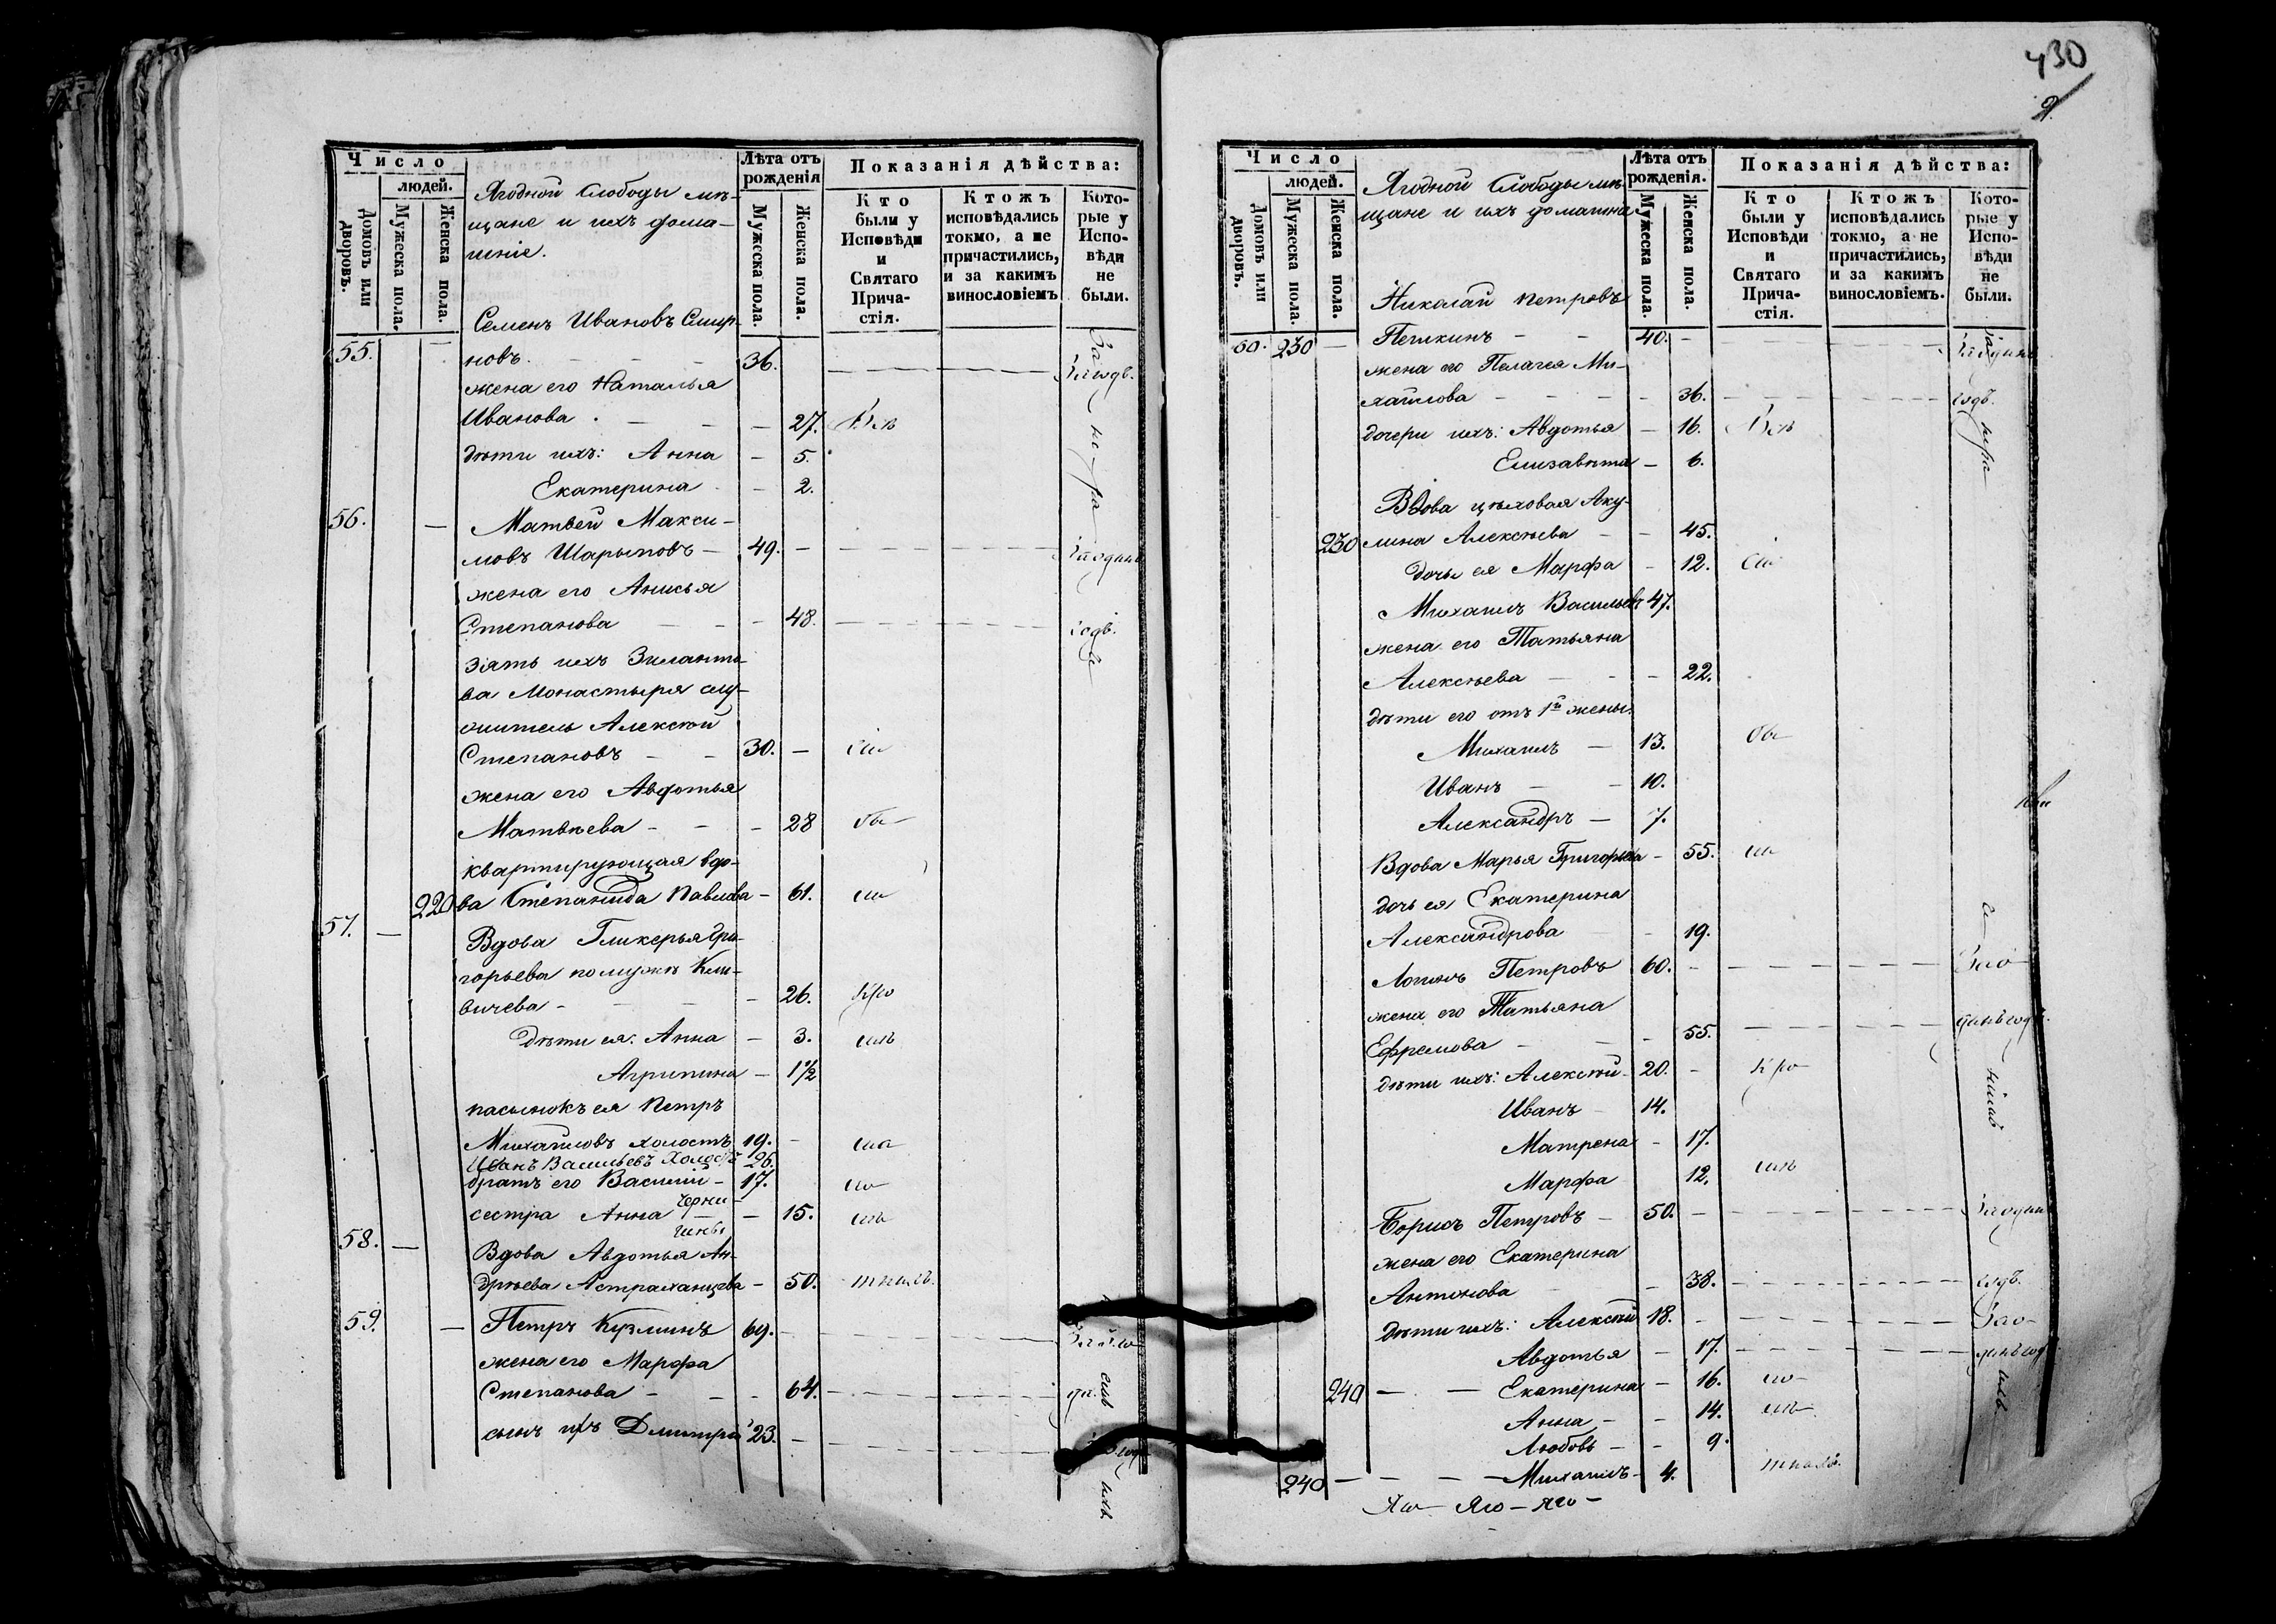 430
2
Число
людей.
Домовъ или дворовъ.
Мужеска пола.
Женска пола.
Ягодной Слободы мѣ-
щане и ихъ дома-
шніе.
Лѣта отъ рожденія
Мужеска пола.
Женска пола.
Показанія дѣйства:
Кто были у Исповѣди и Святаго Прича-стія.
Ктожъ исповѣдались токмо, а не причастились, и за какимъ винословіемъ
Кото-рые у Испо-вѣди не были.
Семенъ Ивановъ Смир-
55. новъ. 36.
жена его Наталья
Иванова 27.
дѣти ихъ: Анна 5.
Екатерина 2.
56. Матвей Макси-
мовъ Шарыповъ 49.
жена его Анисья
Степанова 48.
зять ихъ Зиланто-
ва Монастыря слу-
житель Алексѣй
Степановъ 30.
жена его Авдотья
Матвѣева 28
квартирующая вдо-
220 ва Степанида Павлова 61.
57. Вдова Гликерья Гри-
горьева по мужѣ Кли-
вичева 26.
дѣти ея: Анна 3.
Агрипина 1 1/2
пасынокъ ея Петръ
Михайловъ холостъ 19.
Иванъ Васильевъ Холостъ 26.
братъ его Василій 17.
сестра Анна 15.
58. Вдова Авдотья Ан-
дрѣева Астраханцева 50.
59. Петръ Кузминъ 69.
жена его Марфа
Степанова 64.
сынъ ихъ Дмитрій 23.
Число
людей.
Домовъ или дворовъ.
Мужеска пола.
Женска пола.
Ягодной Слободы мѣ-
щане и ихъ домашніе
Лѣта отъ рожденія.
Мужеска пола.
Женска пола.
Показанія дѣйства:
Кто были у Исповѣди и Святаго Прича-стія.
Ктожъ исповѣдались токмо, а не причастились, и за какимъ винословіемъ.
Кото-рые у Испо-вѣди не были.
Николай Петровъ
60. 230 Пешкинъ 40.
жена его Пелагея Ми-
хайлова 36.
дочери ихъ: Авдотья 16.
Елизавета 6.
Вдова цѣховая Аку-
230 лина Алексѣева 45.
дочь ея Марфа 12.
Михаилъ Васильевъ 47.
жена его Татьяна
Алексѣева 22.
дѣти его отъ 1й жены:
Михаилъ 13.
Иванъ 10.
Александръ 7.
Вдова Марья Григорьева 55.
дочь ея Екатерина
Александрова 19.
Логинъ Петровъ 60.
жена его Татьяна
Ефремова 55.
дѣти ихъ: Алексѣй 20.
Иванъ 14.
Матрена 17.
Марфа 12.
Борисъ Петровъ 50.
жена его Екатерина
Антонова 38.
дѣти ихъ: Алексѣй 18.
Авдотья 17.
240 Екатерина 16.
Анна 14.
Любовь 9.
240 Михаилъ 4.